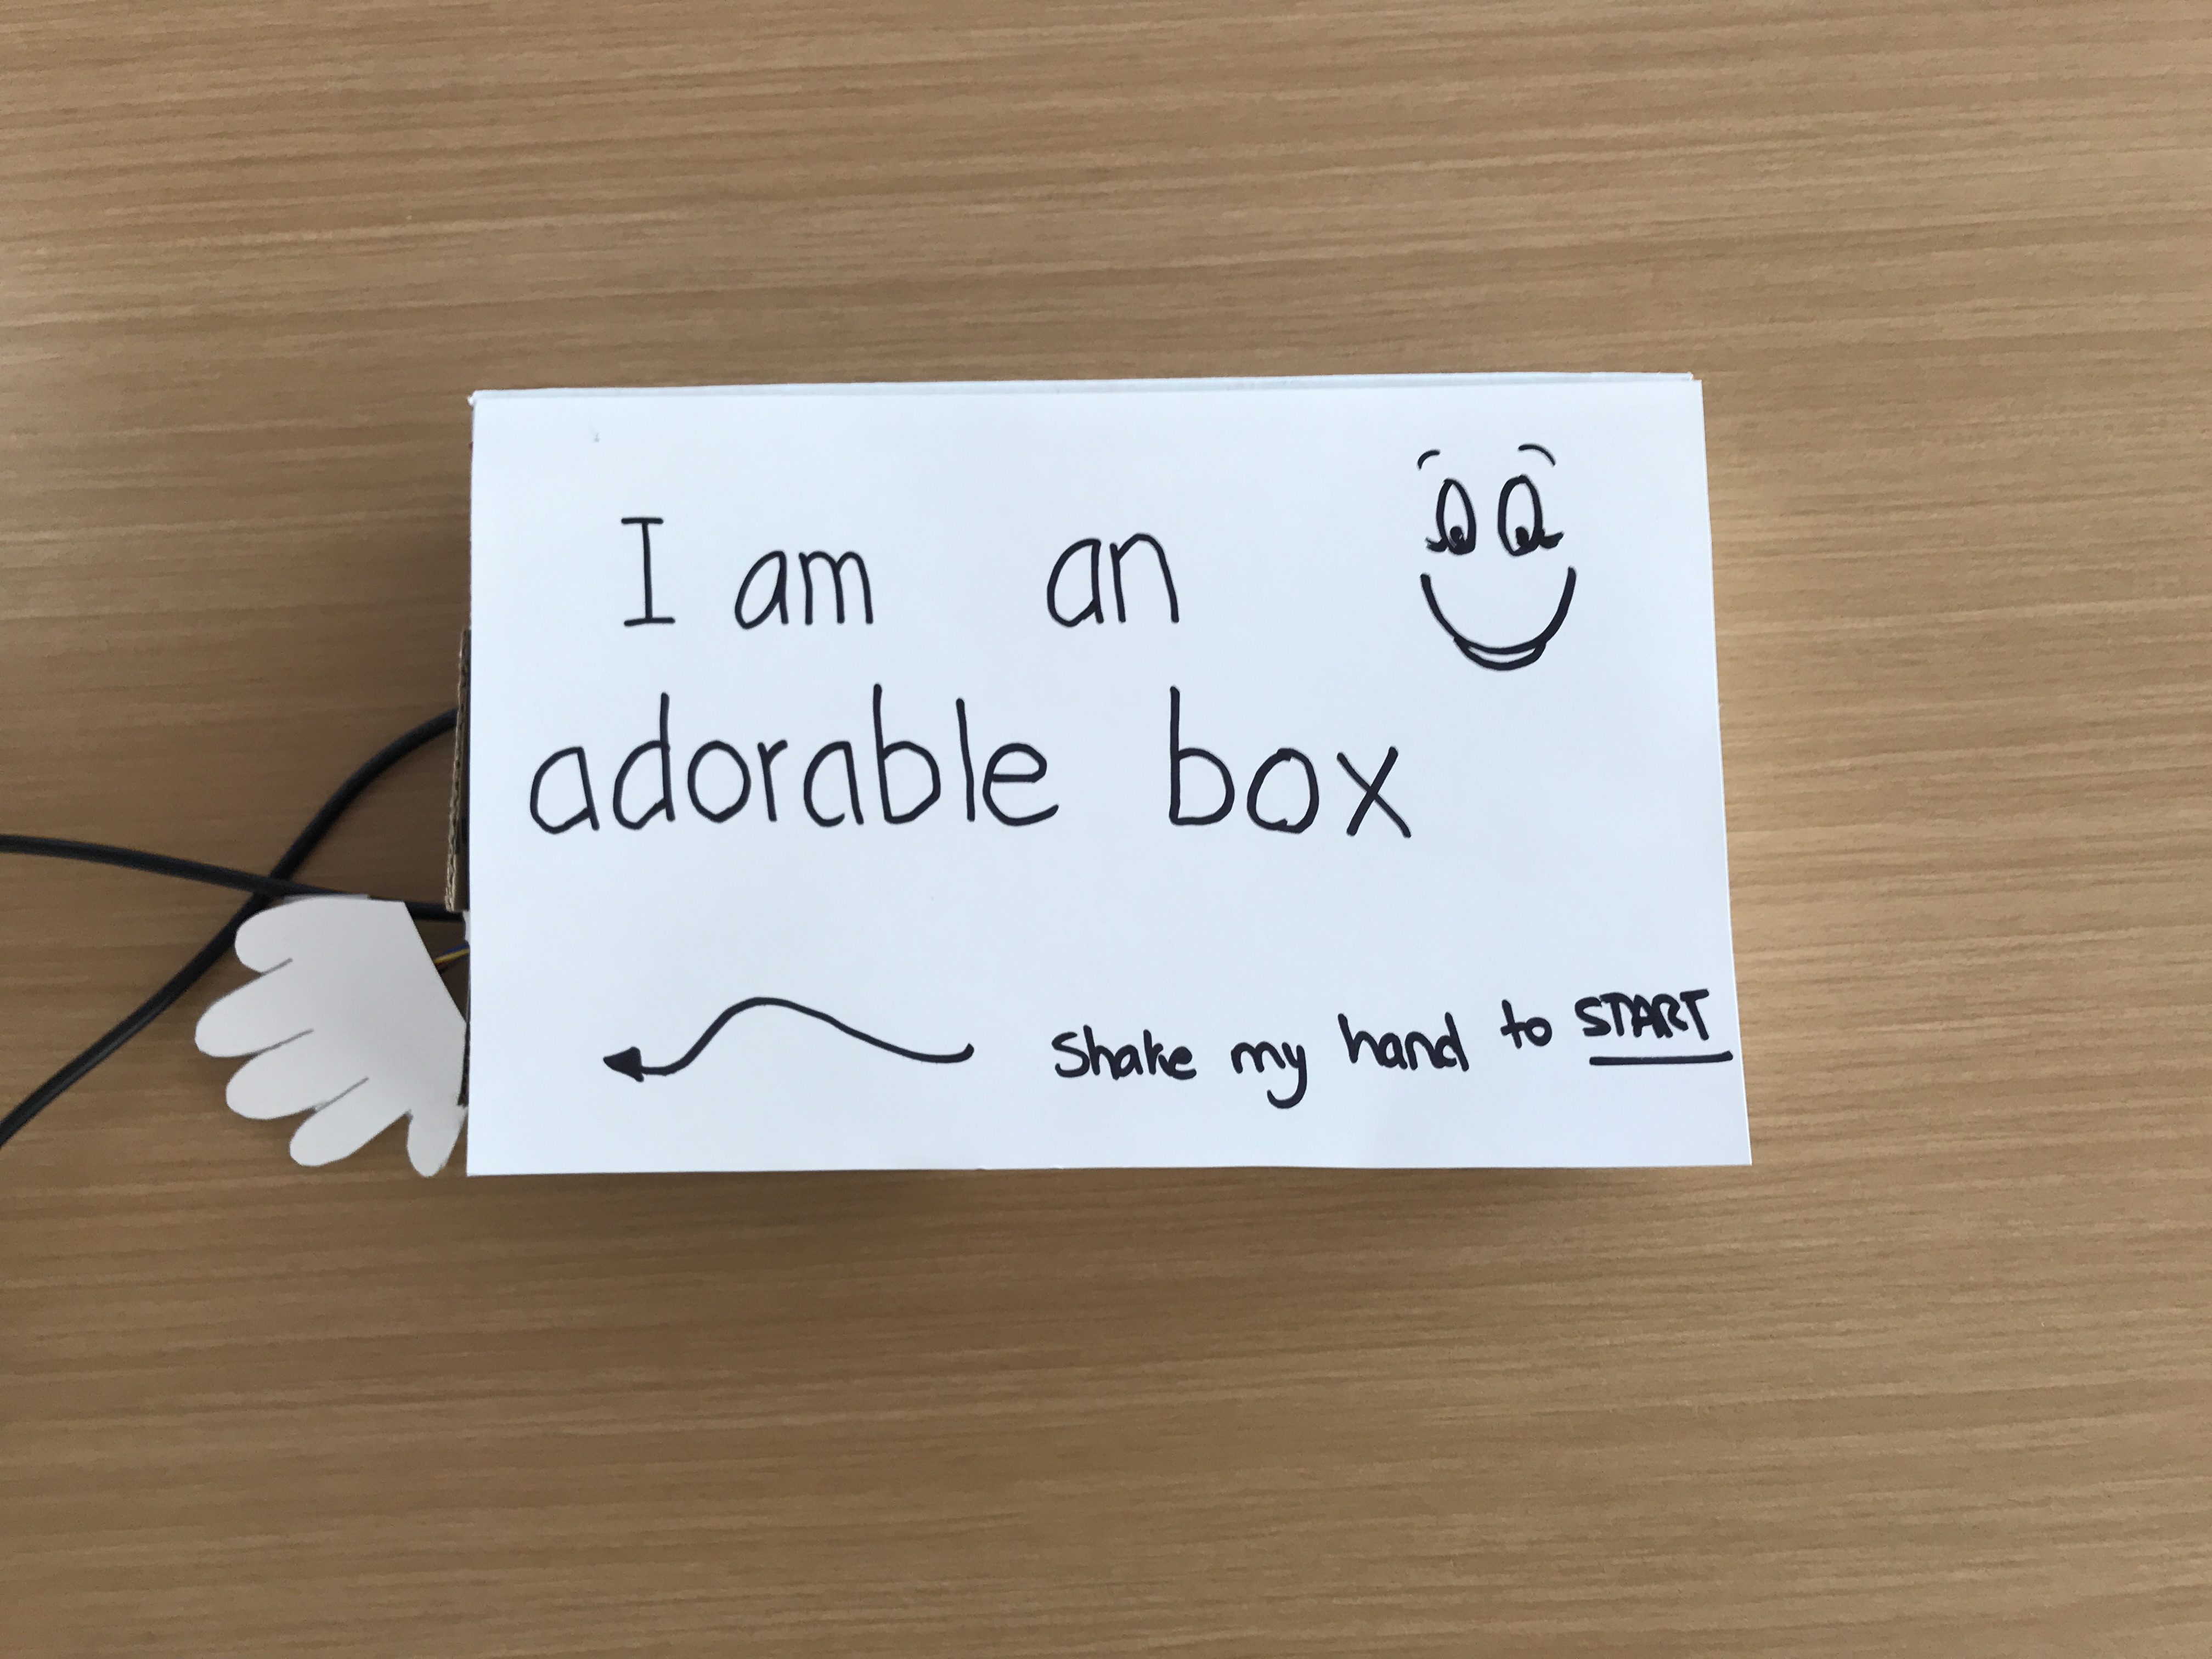 I am an
adorable box
Shake my hand to START